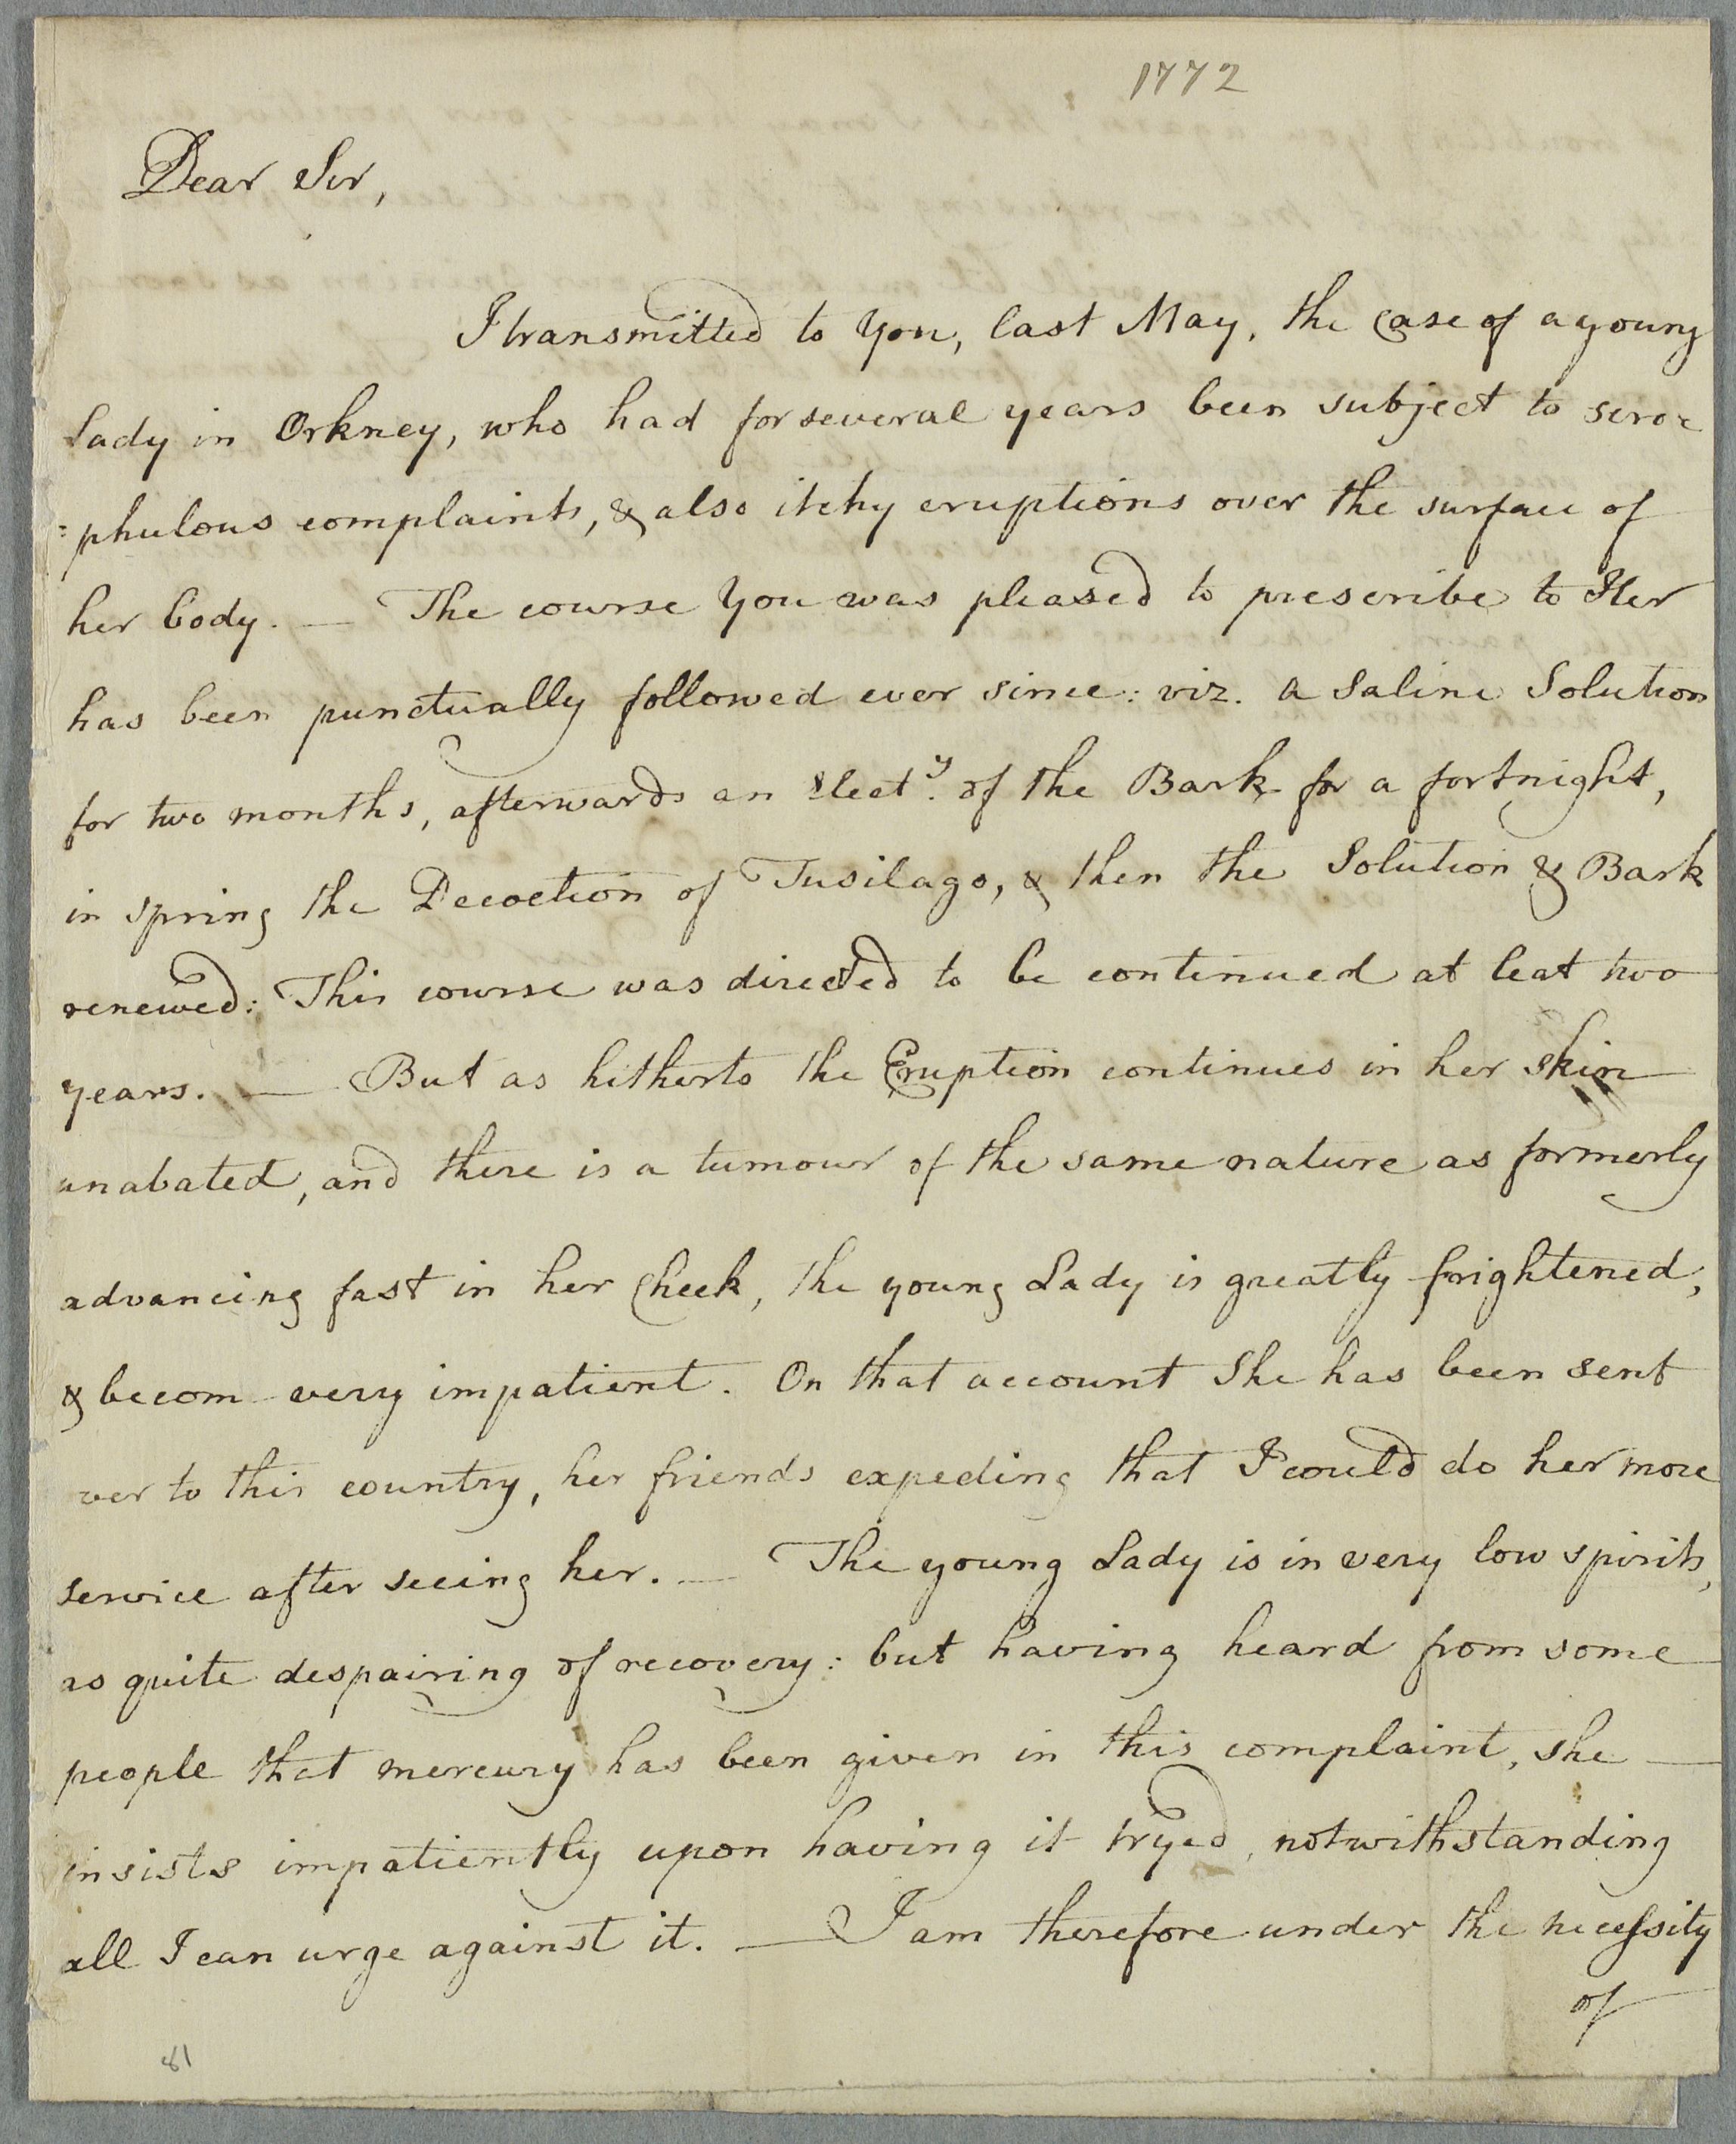 1772
Dear Sir,
I transmitted to You, last May, the Case of a young
Lady in Orkney, who had for several years been subject to scro=
=phulous complaints, & also itchy eruptions over the surface of
her body. — The course You was pleased to prescribe to Her
has been punctually followed ever since: viz. a Saline Solution
for two months, afterwards an Elect.y of the Bark for a fortnight,
in spring the Decoction of Tusilago, & then the Solution & Bark
renewed: This course was directed to be continued at leat two
years. — But as hitherto the Eruption continues in her skin
unabated, and there is a tumour of the same nature as formerly
advancing fast in her Cheek, the young Lady is greatly frightened,
& becom very impatient. On that account She has been sent
ver to this country, her friends expecting that I could do her more
service after seeing her. — The young Lady is in very low spirits,
as quite despairing of recovery: but having heard from some
people that mercury has been given in this complaint, she —
insists impatiently upon having it tryed, notwithstanding
all I can urge against it. — I am therefore under the necessity
of
81